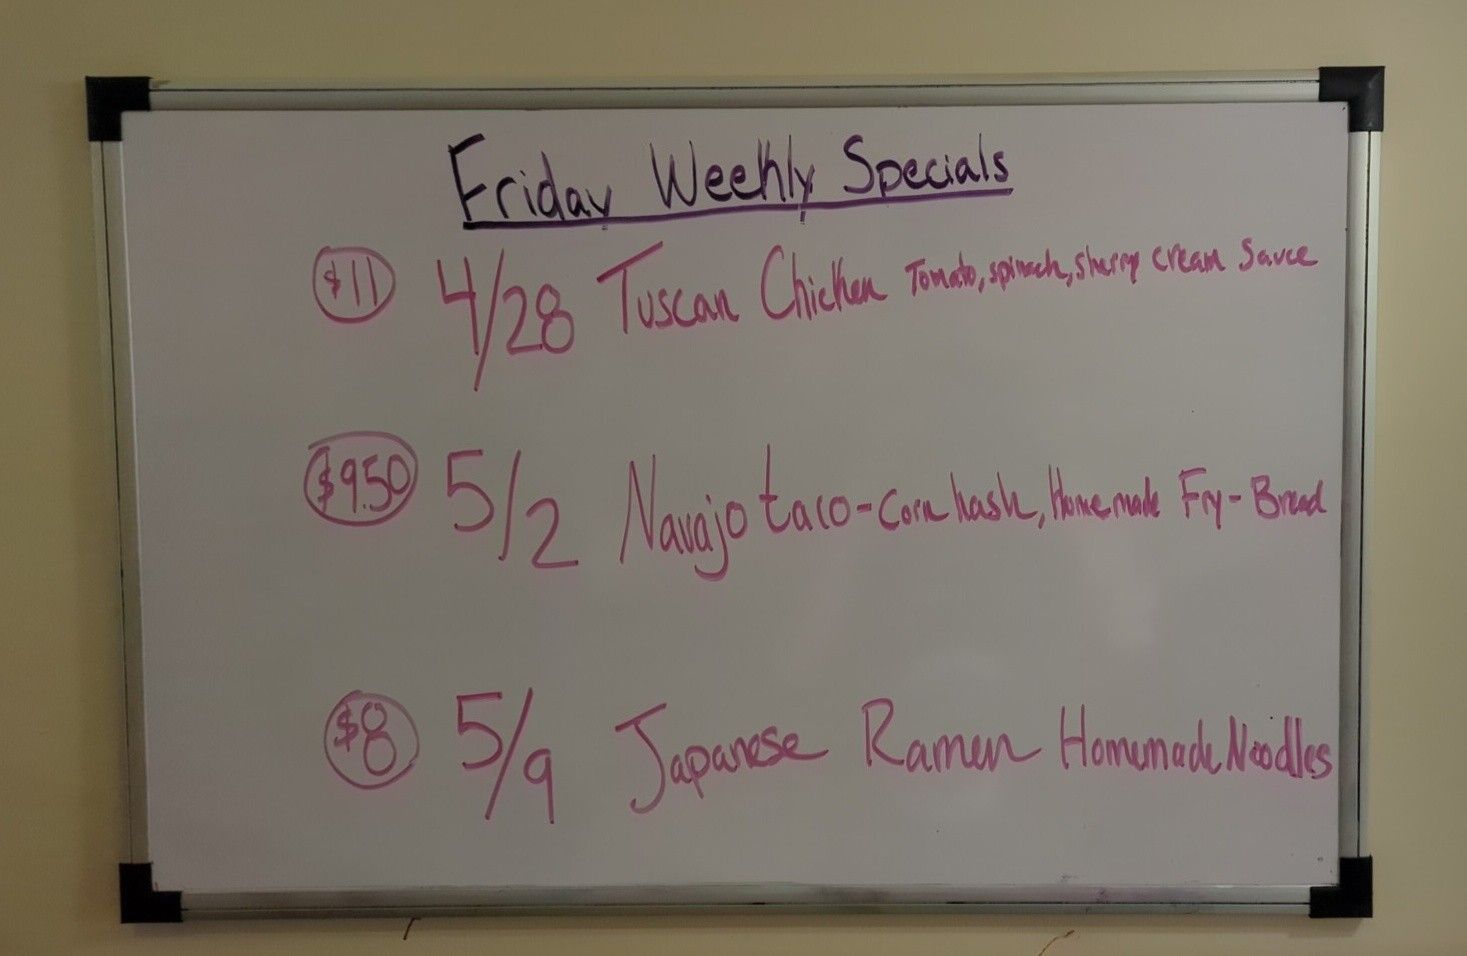 Friday Weekly Specials
$11 4/28 Tuscan Chicken Tomato, spinach, sherry cream Sauce
$9.50 5/2 Navajo taco - Corn hash, Homemade Fry-Bread
$8 5/9 Japanese Ramen Homemade Noodles